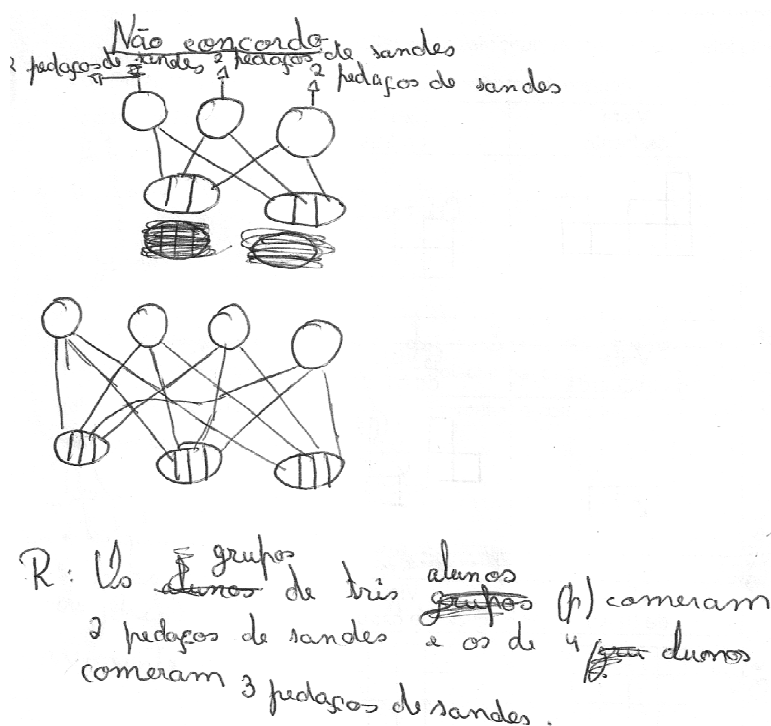 Não concordo
2 pedaços de sandes 2 pedaços de sandes
2 pedaços de sandes
R: Os grupos de três alunos (p) comeram
2 pedaços de sandes e os de 4 alunos
comeram 3 pedaços de sandes.